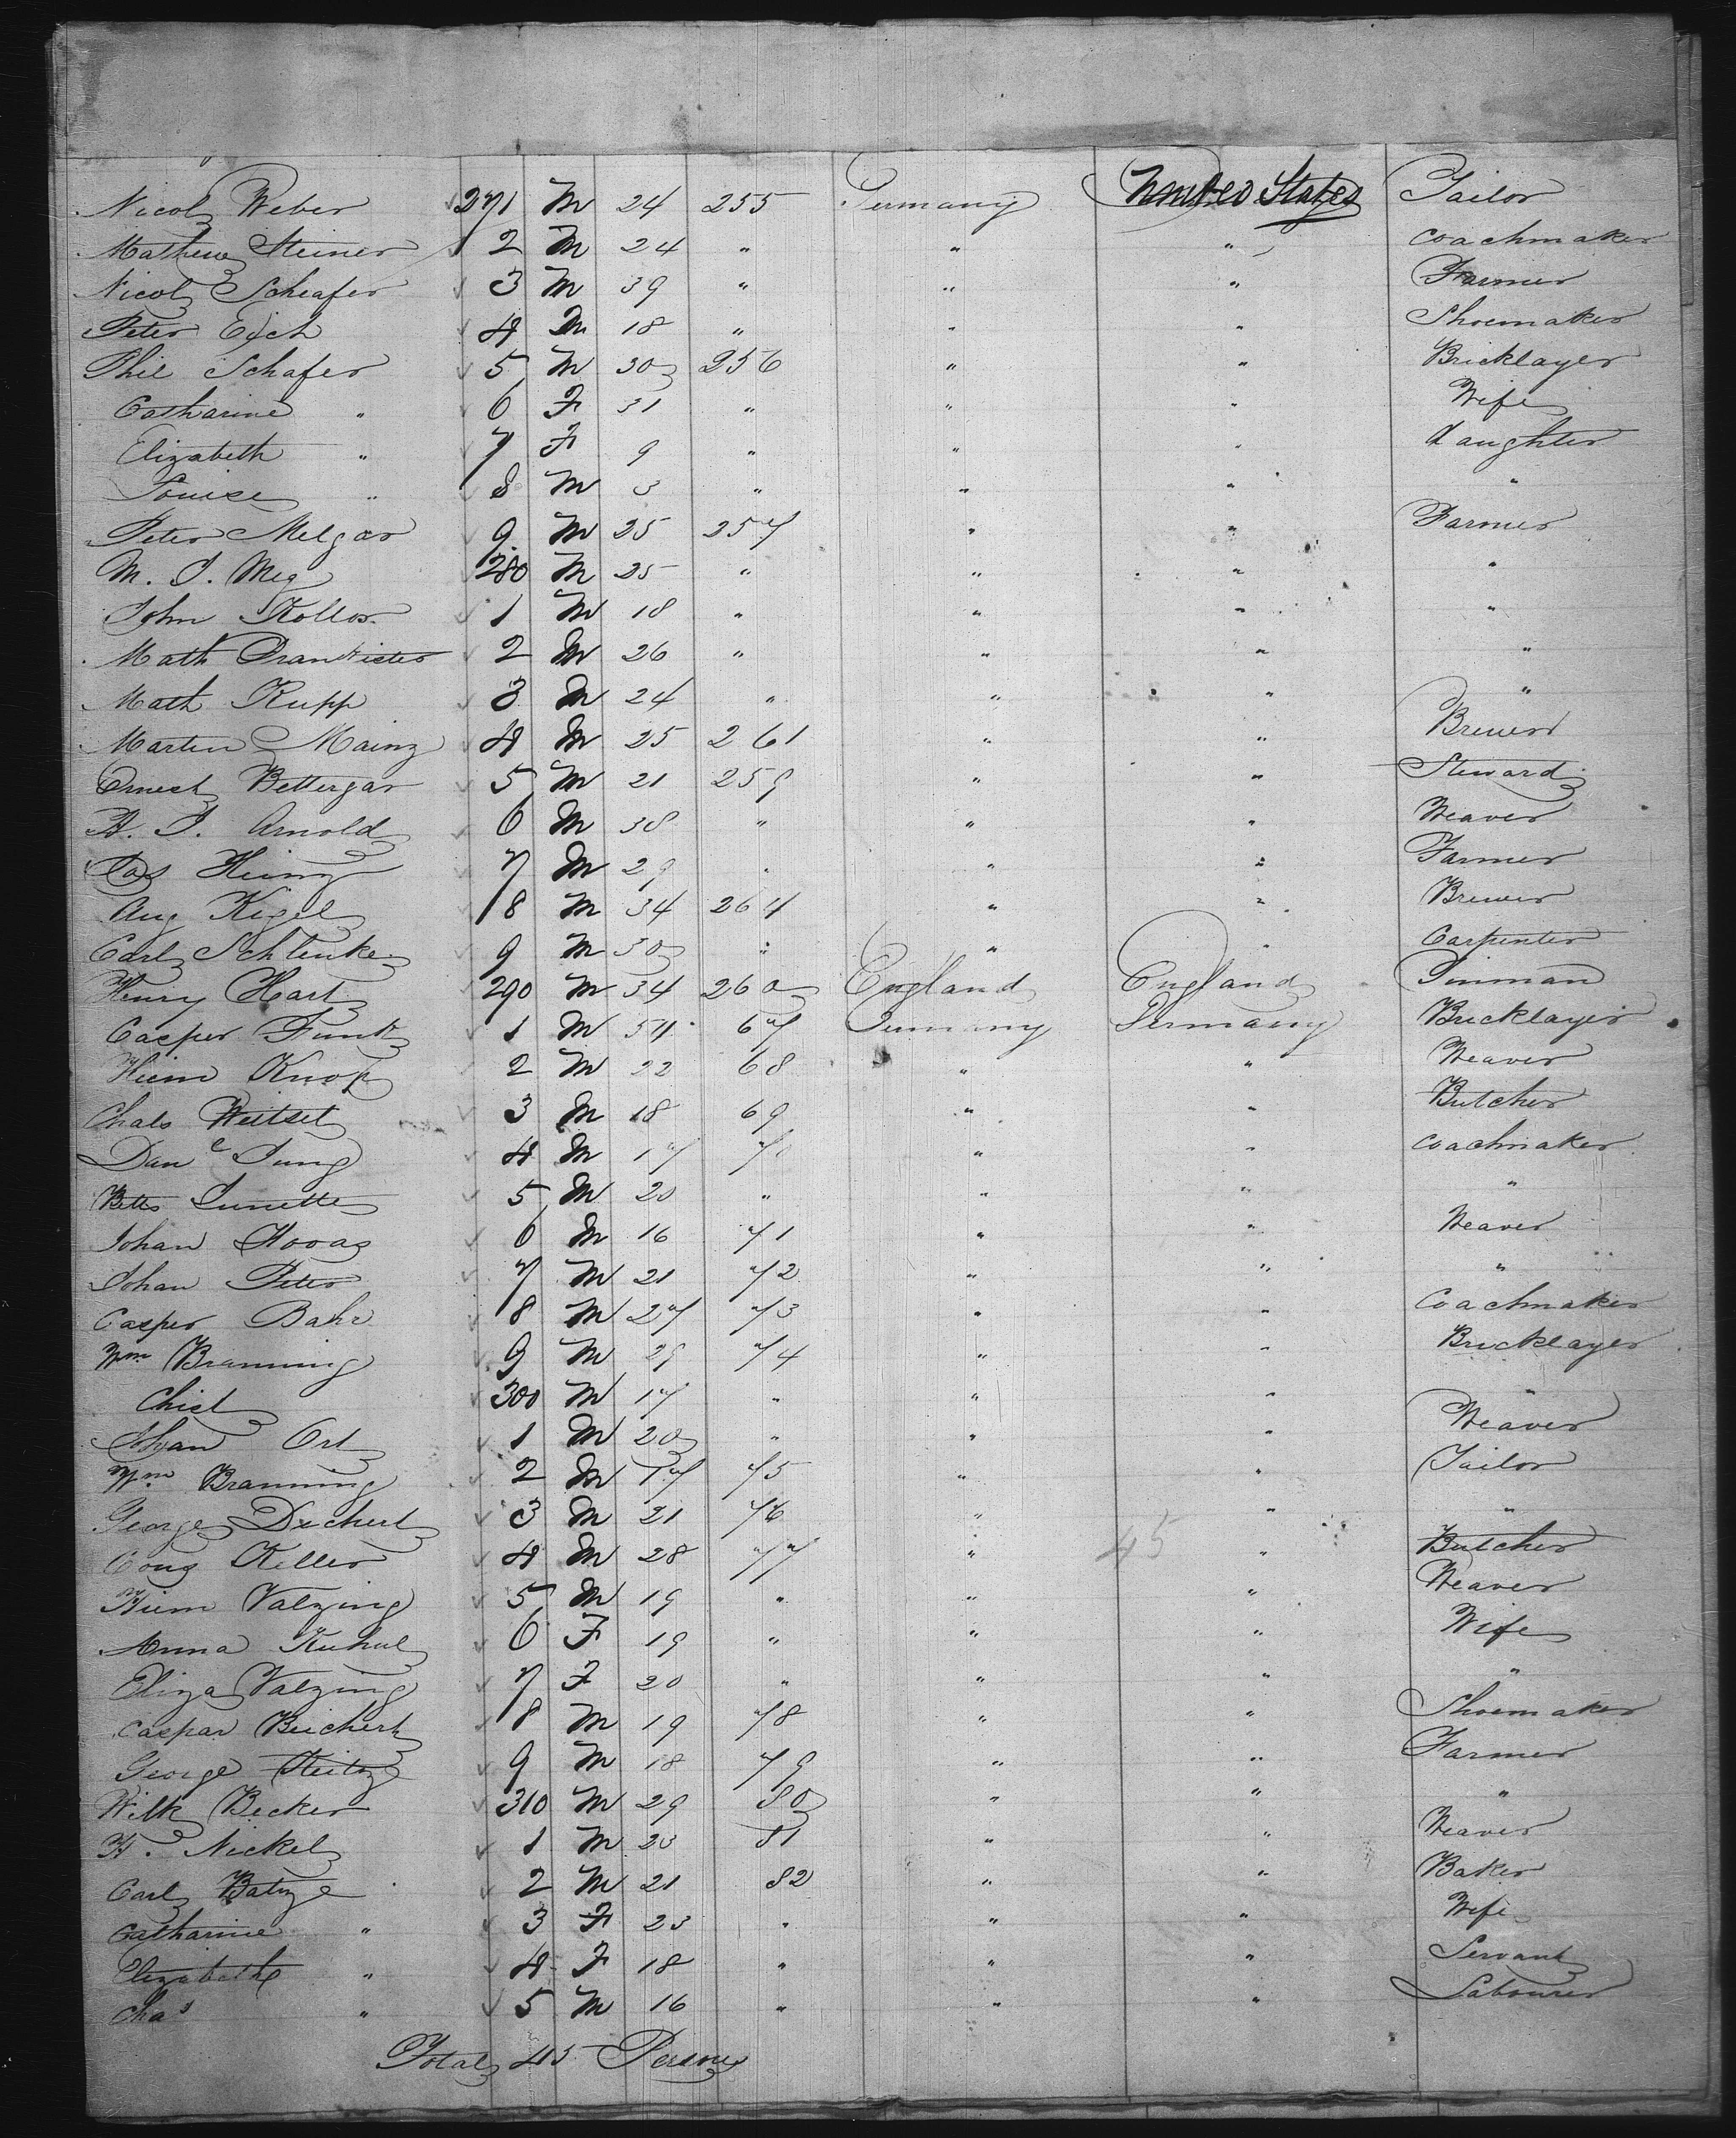 Nicol Weber 271 M 24 255 Germany United States Tailor
Mathew Steiner 2 M 24 " " " Coachmaker
Nicol Scheafer 3 M 39 " " " Farmer
Peter Eich 4 M 18 " " " Shoemaker
Phil Schafer 5 M 30 256 " " Bricklayer
Catharine " 6 F 31 " " " Wife
Elizabeth " 7 F 9 " " " daughter
Louise " 8 M 3 " " " "
Peter Melgar 9 M 25 257 " " Farmer
M. J. Meg 280 M 25 " " " "
John Kollor 1 M 18 " " " "
Math 2 M 26 " " " "
Math Rupp 3 M 24 " " " "
Martin Mainz 4 M 25 261 " " Brewer
Ernest Bettergar 5 M 21 259 " " Steward
A. J. Arnold 6 M 38 " " " Weaver
7 M 29 " " " Farmer
Aug Kigel 8 M 34 264 " " Brewer
Carl Schlenke 9 M 30 " " " Carpenter
Henry Hart 290 M 34 260 England England Tinman
Casper Funk 1 M 54 67 Germany Germany Bricklayer
Heim Knop 2 M 22 68 " " Weaver
Chals Weitset 3 M 18 69 " " Butcher
Danl Jung 4 M 17 70 " " Coachmaker
Lunette 5 M 20 " " " "
Johan Hooag 6 M 16 71 " " Weaver
Johan Peter 7 M 21 72 " " "
Casper Bahr 8 M 27 73 " " Coachmaker
Wm Branning 9 M 29 74 " " Bricklayer
Chist 300 M 17 " " " "
Johan Ort 1 M 20 " " " Weaver
Wm Branning 2 M 17 75 " " Tailor
George Dechert 3 M 21 76 " " "
Cong Keller 4 M 28 77 " 45 " Butcher
Heim Valzing 5 M 19 " " " Weaver
Anna Kuhul 6 F 19 " " " Wife
Eliza Valzing 7 F 20 " " " "
Caspar Beichert 8 M 19 78 " " Shoemaker
George Heitz 9 M 18 79 " " Farmer
Wilk Becker 310 M 29 80 " " "
H. Nickel 1 M 23 81 " " Weaver
Carl Batzge 2 M 21 82 " " Baker
Catharine " 3 F 23 " " " Wife
Elizabeth " 4 F 18 " " " Servant
Chas " 5 M 16 " " " Labourer
Total 45 Persons